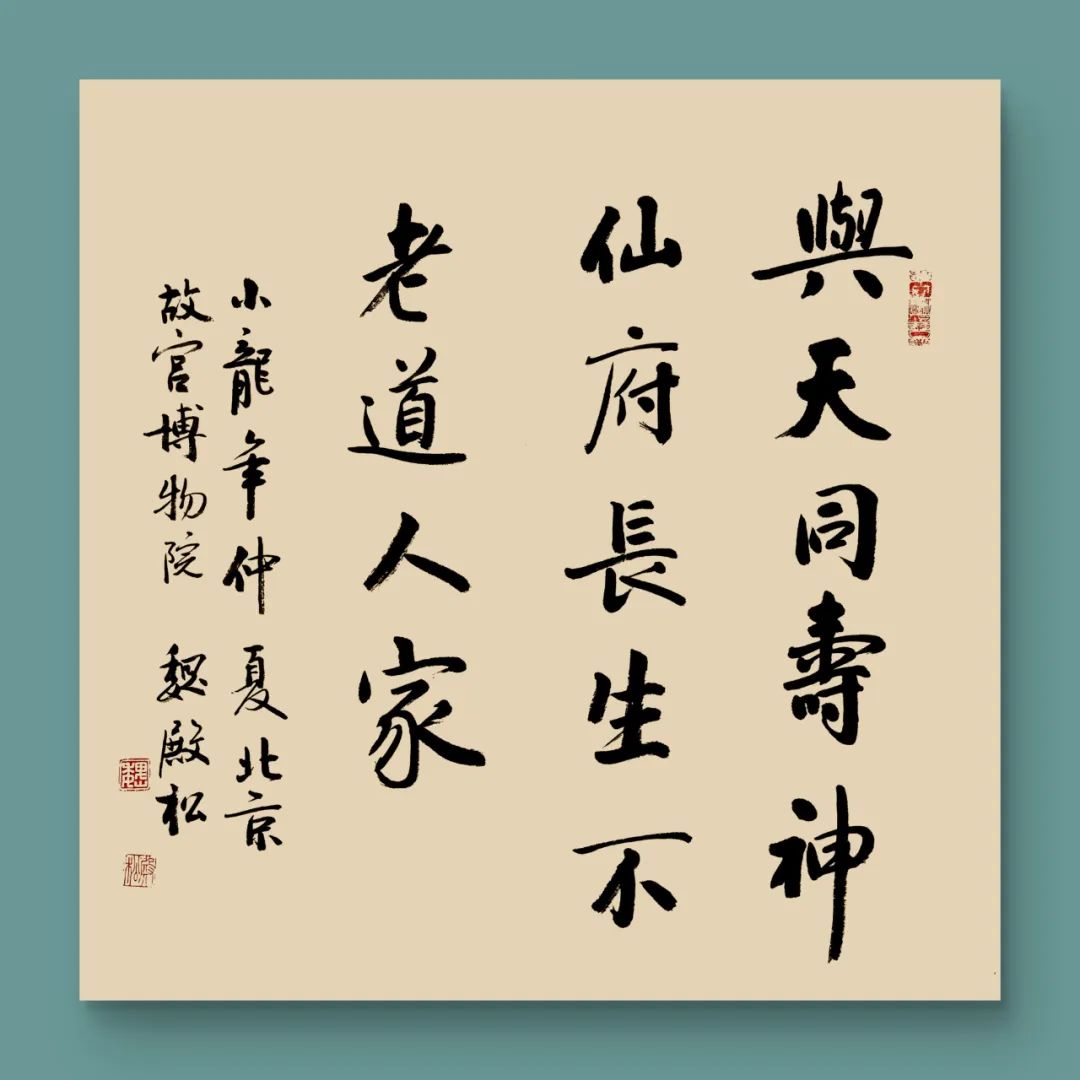 與天同壽神
仙府長生不
老道人家
小龍年仲夏北京
故宫博物院 魏殿松
魏
殿松